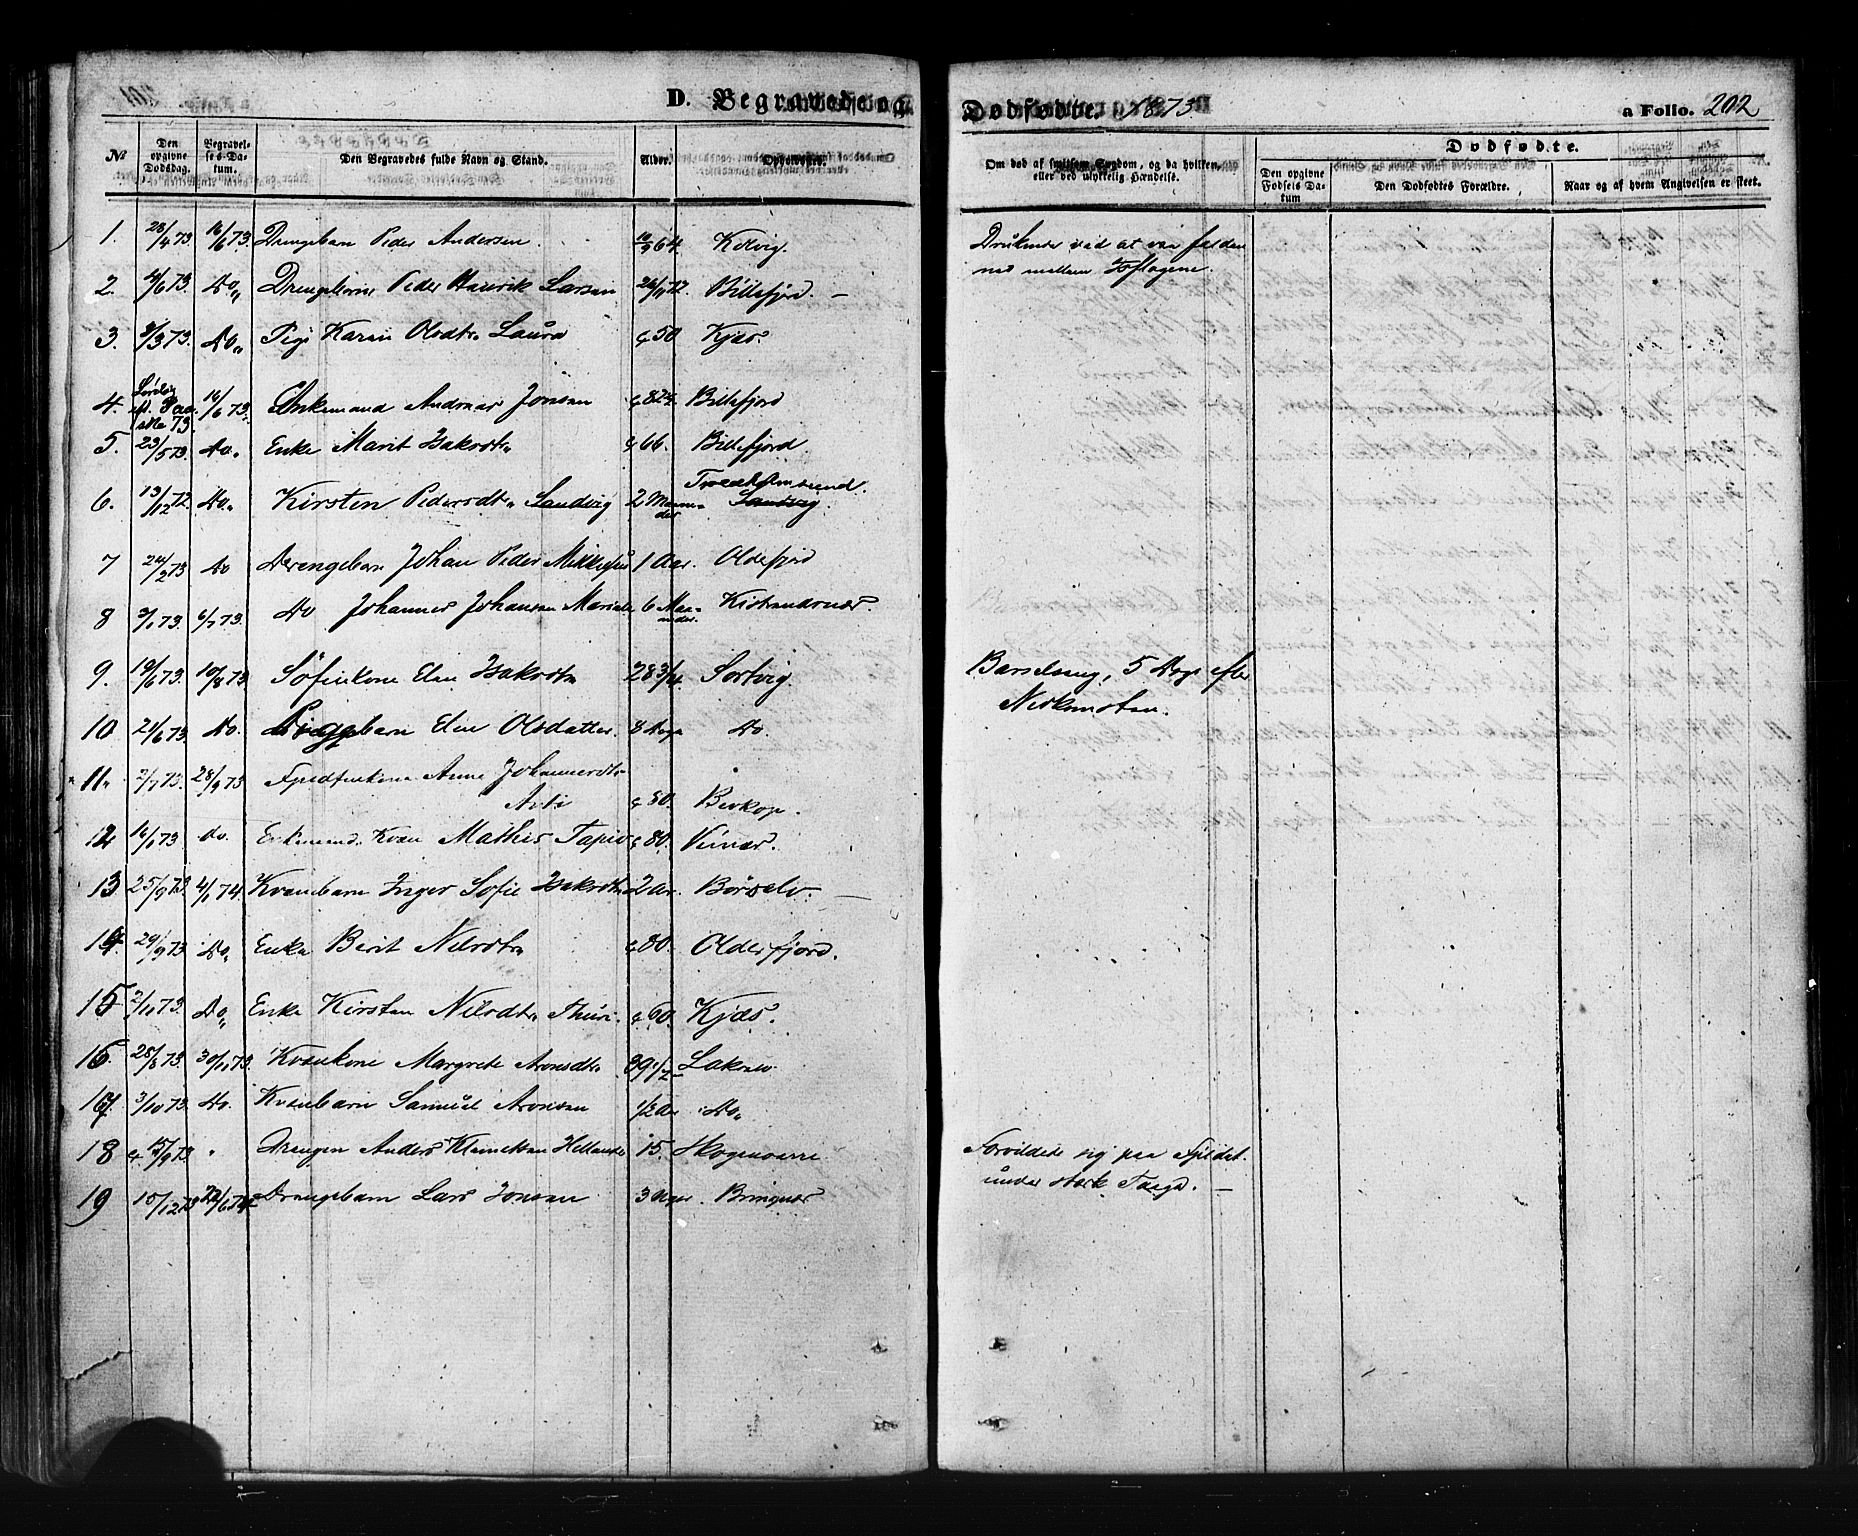 D. Begravede og Dødfødte. 1873. a Folio. 202
№ Den opgivne Dødsdag. Begravelses-Datum. Den Begravedes fulde Navn og Stand. Alder. Opholdssted. Om død af smitsom Sygdom, og da hvilken, eller ved ulykkelig Hændelse. Dødfødte. Den opgivne Fødsels Datum Den Dødfødtes Forældre. Naar og af hvem Angivelsen er skeet.
1. 28/4 73. 16/6 73. Drengebarn Peder Andersen. 10/9 64. Kolvig. Druknede ved at være falden
ned mellem
2. 4/6 73. Do. Drengebarn Peder Henrik Larsen 26/11 72. Billefjord. —
3. 3/3 73. Do. Pige Karen Olsdtr Laura c 50 Kjæs.
4. 73. 16/6 73. Enkemand Andreas Jonsen c 82 Billefjord
5. 23/5 73. Do. Enke Marit Isaksdtr c 66. Billefjord.
6. 13/12 72. Do. Kirsten Pedersdtr Sandvig 2 Maaneder Sandvig
7 24/2 73 Do Drengebarn Johan Peder Mikkelsen 1 Aar. Oldefjord
8 3/1 73. 6/7 73. Do Johannes Johansen 6 Maaneder. Kistrandnæs.
9. 19/6 73. 10/8 73. Søfinkone Elen Isaksdtr 28 3/4. Sortvig. Barselseng, 5 Dage efter
Nedkomsten.
10 24/6 73. Do. Piggebarn Elen Olsdatter 8 Dage Do.
11. 2/7 73. 28/9 73 Fjeldfinkone Anne Johannesdtr
c 80. Bevkop.
12 16/1 73 do. Enkemand Kvæn Mathis Tapio c 80. Veinæs.
13 25/9 73. 4/1 74. Kvænbarn Inger Sofie Isaksdtr 2 Ar. Børselv. —
14. 29/9 73 Do. Enke Berit Nilsdtr c 80. Olderfjord.
15 2/11 73. Do. Enke Kirsten Nilsdtr Thuri. c 60. Kjæs.
16. 28/8 73. 30/11 73. Kvænkone Margrete Aronsdtr 39 1/2 Lakselv.
17. 3/10 73. Do. Kvænbarn Samuel Aronsen 1/2 Ar Do.
18 c 15/9 73. " Drengen Anders Klemetsen 15. Skogenvarre Forvildede sig paa Fjeldet
under stærk Taage. —
19 15/12 73 22/6 74 Drengebarn Lars Jonsen 3 Dage. Bringnæs